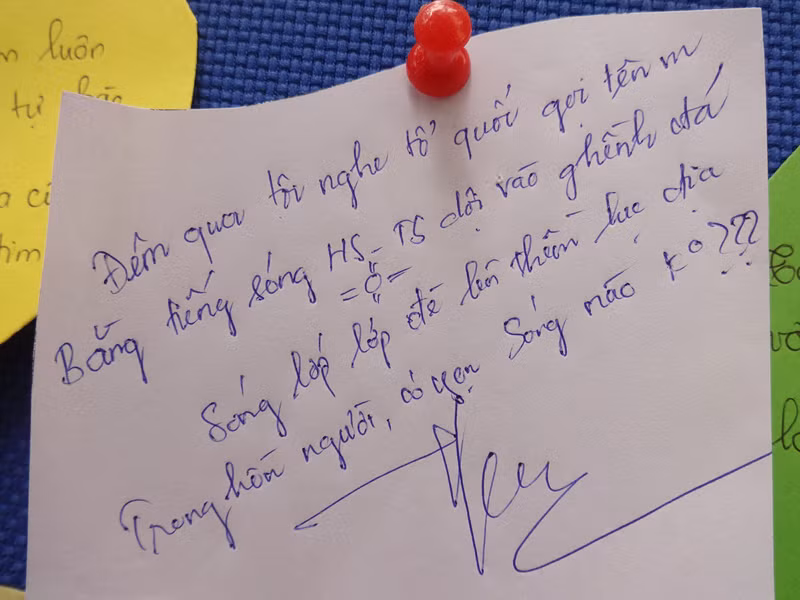 n luôn
tự hào
a c
tim
Đêm qua tôi nghe tổ quốc gọi tên m
Bằng tiếng sóng HS_TS dội vào ghềnh đá
Sóng lớp lớp đè lên thềm lục địa
Trong hồn người, có ngọn sóng nào ko???